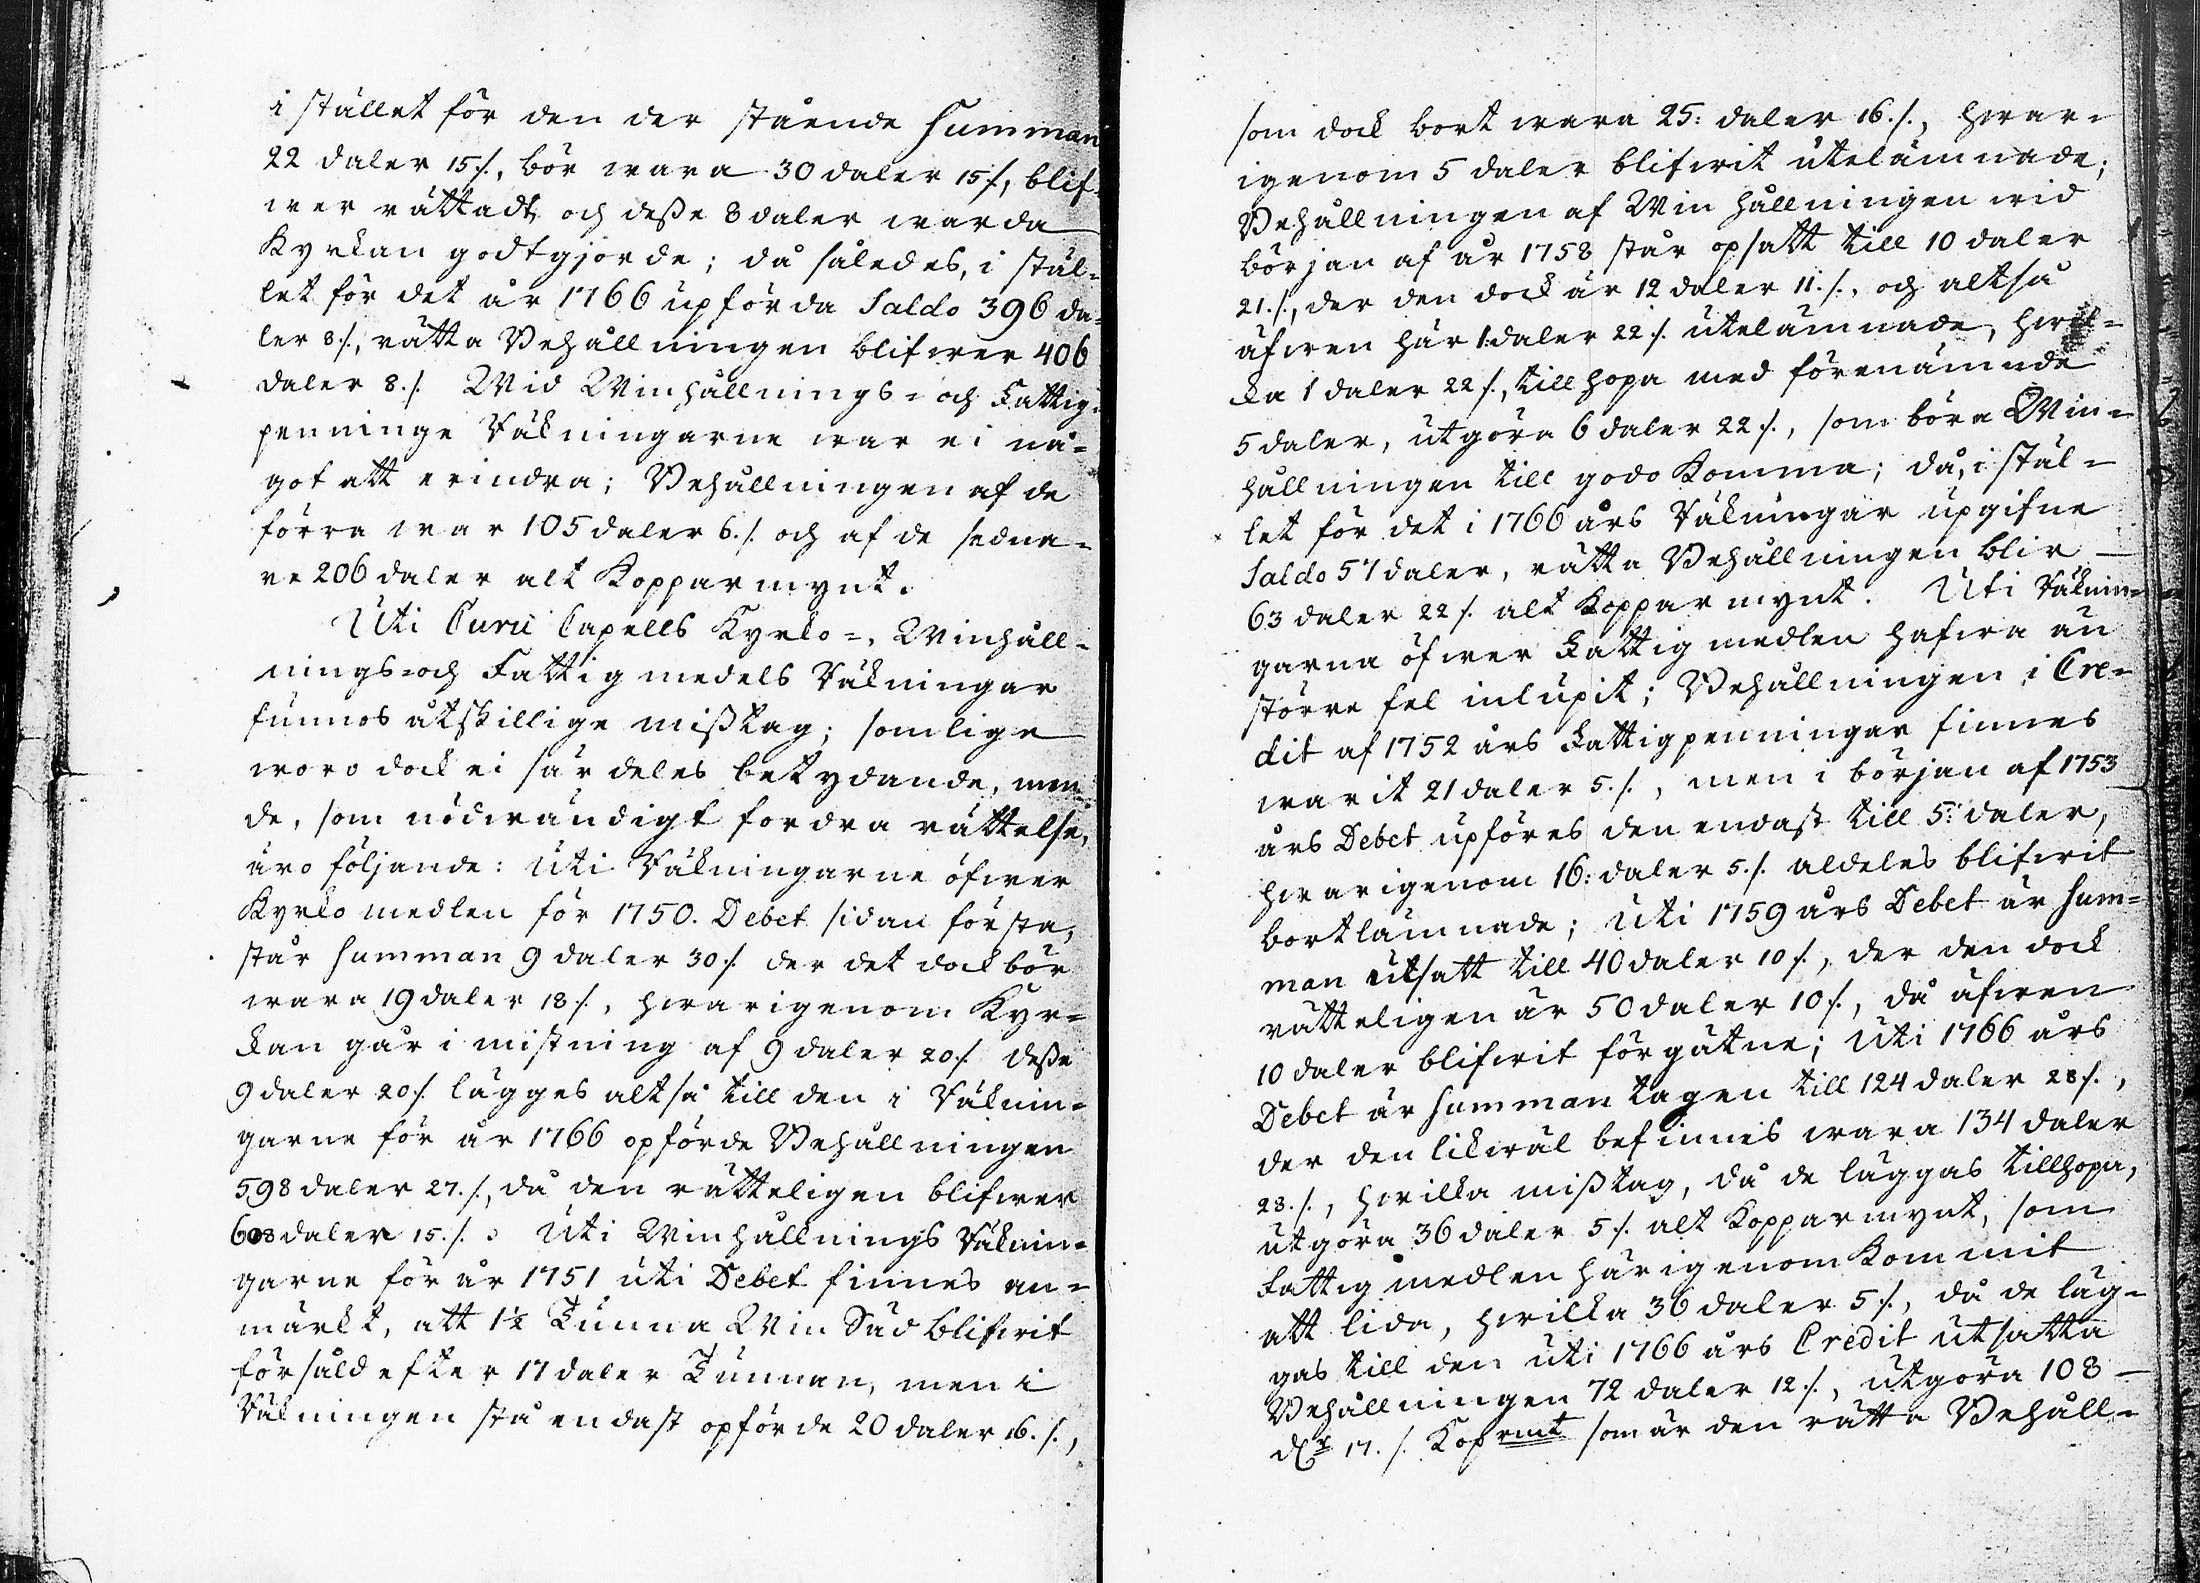 i stället för den der stående Summan
22 daler 15./., bör wara 30 daler 15./., blif-
wer rättadt, och deße 8 daler warda
Kyrkan godtgjorde; då således, i stäl-
let för det år 1766 upförda Saldo 396 da-
ler 8./., rätta Behållningen blifwer 406
daler 8./. Wid Winhållnings- och Fattig-
penninge Räkningarne war ei nå-
got att erindra; Behållningen af de
förra war 105 daler 6./. och af de sedna-
re 206 daler alt Kopparmynt.
Uti Curu Capells Kyrko-, Winhåll-
nings- och Fattigmedels Räkningar
funnos åtskillige mißtag; somlige
woro dock ei särdeles betydande, men
de, som nödwändigt fordra rättelse,
äro följande: Uti Räkningarne öfwer
Kyrkomedlen för 1750. Debet sidan första,
står Summan 9 daler 30./. der det dock bör
wara 19 daler 18./., hwarigenom Kyr-
kan går i mistning af 9 daler 20./. deße
9 daler 20./. lägges altså till den i Räknin-
garne för år 1766 opförde Behållningen
598 daler 27./., då den rätteligen blifwer
608 daler 15./. Uti Winhållnings Räknin-
garne för år 1751 uti Debet finnes an-
märkt, att 1½ Tunna Win Säd blifwit
försåld efter 17 daler Tunnan, men i
Räkningen stå endast opförde 20 daler 16./.,
som dock bort wara 25: daler 16./., hwar-
igenom 5 daler blifwit utelämnade;
Behållningen af Winhållningen wid
början af år 1758 står opsatt till 10 daler
21./., der den dock är 12 daler 11./., och altså
äfwen här 1 daler 22./. utelämnade, hwil-
ka 1 daler 22./., tillhopa med förenämnde
5 daler, utgöra 6 daler 22./., som böra Win-
hållningen till godo Komma; då, i stäl-
let för det i 1766 års Räkningar upgifne
Saldo 57 daler, rätta Behållningen blir
63 daler 22./. alt Kopparmynt. Uti Räknin-
garna öfwer Fattigmedlen hafwa än
större fel inlupit; Behållningen i Cre-
dit af 1752 års Fattigpenningar finnes
warit 21 daler 5./., men i början af 1753
års Debet upföres den endast till 5: daler,
hwarigenom 16: daler 5./. aldeles blifwit
bortlämnade; Uti 1759 års Debet är Sum-
man utsatt till 40 daler 10./., der den dock
rätteligen är 50 daler 10./., då äfwen
10 daler blifwit förgätne; Uti 1766 års
Debet är Summan tagen till 124 daler 28./.,
der den likwäl befinnes wara 134 daler
28./., hwilka mißtag, då de läggas tillhopa,
utgöra 36 daler 5./. alt Kopparmynt, som
Fattigmedlen härigenom Kommit
att lida, hwilka 36 daler 5./., då de läg-
gas till den uti 1766 års Credit utsatta
Behållningen 72 daler 12./., utgöra 108
dr 17./. Koprmt som är den rätta Behåll-